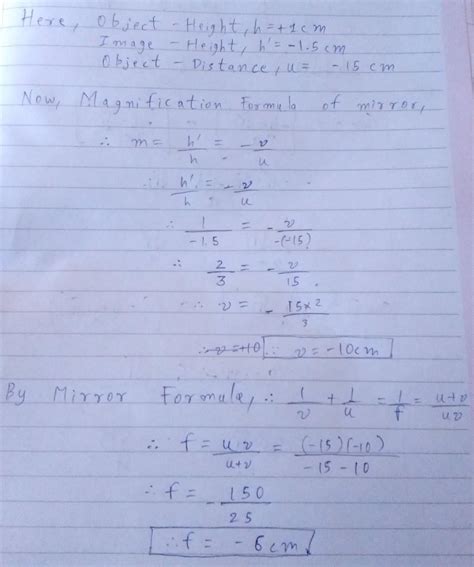 Here, Object - Height, h = +1 cm
Image - Height, h' = -1.5 cm
Object - Distance, u = -15 cm
Now, Magnification Formula of mirror,
∴ m = h'/h = -v/u
∴ h'/h = -v/u
∴ 1/-1.5 = -v/-(-15)
∴ 2/3 = -v/15
∴ v = -15×2/3
∴ v = +10 ∴ v = -10cm
By Mirror Formula, ∴ 1/v + 1/u = 1/f = u+v/uv
∴ f = uv/u+v = (-15)(-10)/-15-10
∴ f = -150/25
∴ f = -6cm